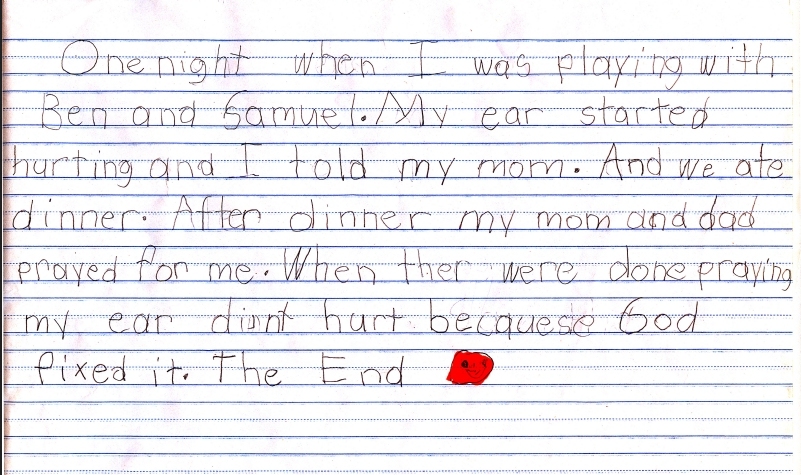 One night when I was playing with
Ben and Samuel. My ear started
hurting and I told my mom. And we ate
dinner. After dinner my mom and dad
prayed for me. When ther were done praying
my ear didnt hurt becquese God
fixed it. The End